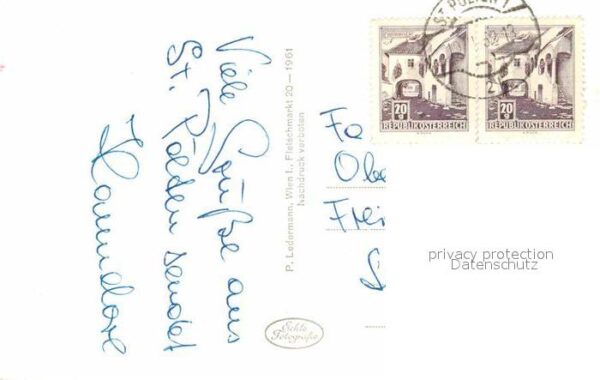 Viele Grüße aus
St. Pölten sendet
Hannelore
P. Ledermann, Wien I., Fleischmarkt 20 — 1961
Nachdruck verboten
Echte
Fotografie
ST. PÖLTEN 1
20 g
REPUBLIK ÖSTERREICH
20 g
REPUBLIK ÖSTERREICH
Fa
Obe
Frei
privacy protection
Datenschutz